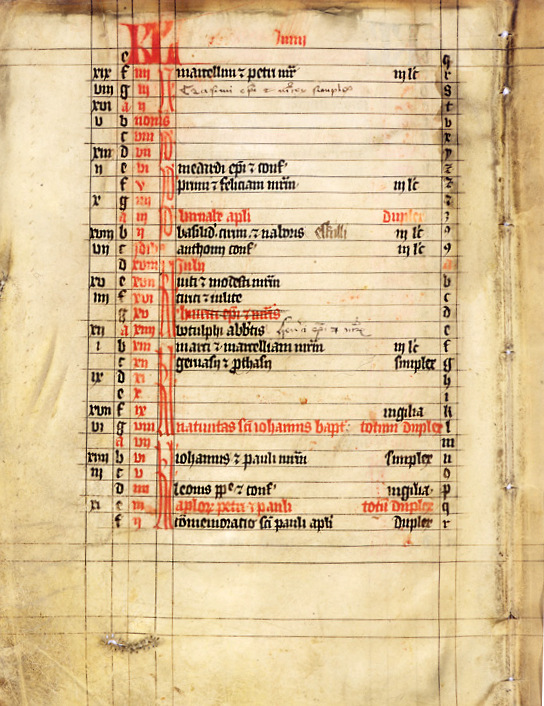 KL Junij
e q
xix f iiij marcellini ⁊ petri mr̄ iij lc̄
viij g iij Erasimi ep̄i ⁊ simplex s
xvi a ij t
v b nonis v
c viij x
xiij d vij y
ij e vi medardi ep̄i ⁊ conf' z
f v primi ⁊ feliciani mr̄m iij lc̄
x g iiij
a iij barnabe apl̄i duplex
xviij b ij basilid' cirini ⁊ naboris iij lc̄ 9
vij c idib' anthonij conf' iij lc̄ 9
d xviij Julij a
xv e xvij viti ⁊ modesti mr̄m b
iiij f xvi cirici ⁊ iulite c
g xv ep̄i ⁊ d
xij a xiiij botulphi abb̄tis ep̄i ⁊ e
i b xiij marci ⁊ marcelliani mr̄m iij lc̄ f
c xij geruasij ⁊ ꝓthasij simplex g
ix d xi h
e x i
xvij f ix vigilia k
vi g viij natiuitas sc̄i iohannis bapt' totum duplex l
a vij m
xiiij b vi iohannis ⁊ pauli mr̄m simplex n
iij c v o
d iiij leonis pp̄e ⁊ conf' vigilia p
xi e iij aplorꝝ petri ⁊ pauli totū duplex q
f ij cōmemoratio sc̄i pauli apl̄i duplex r